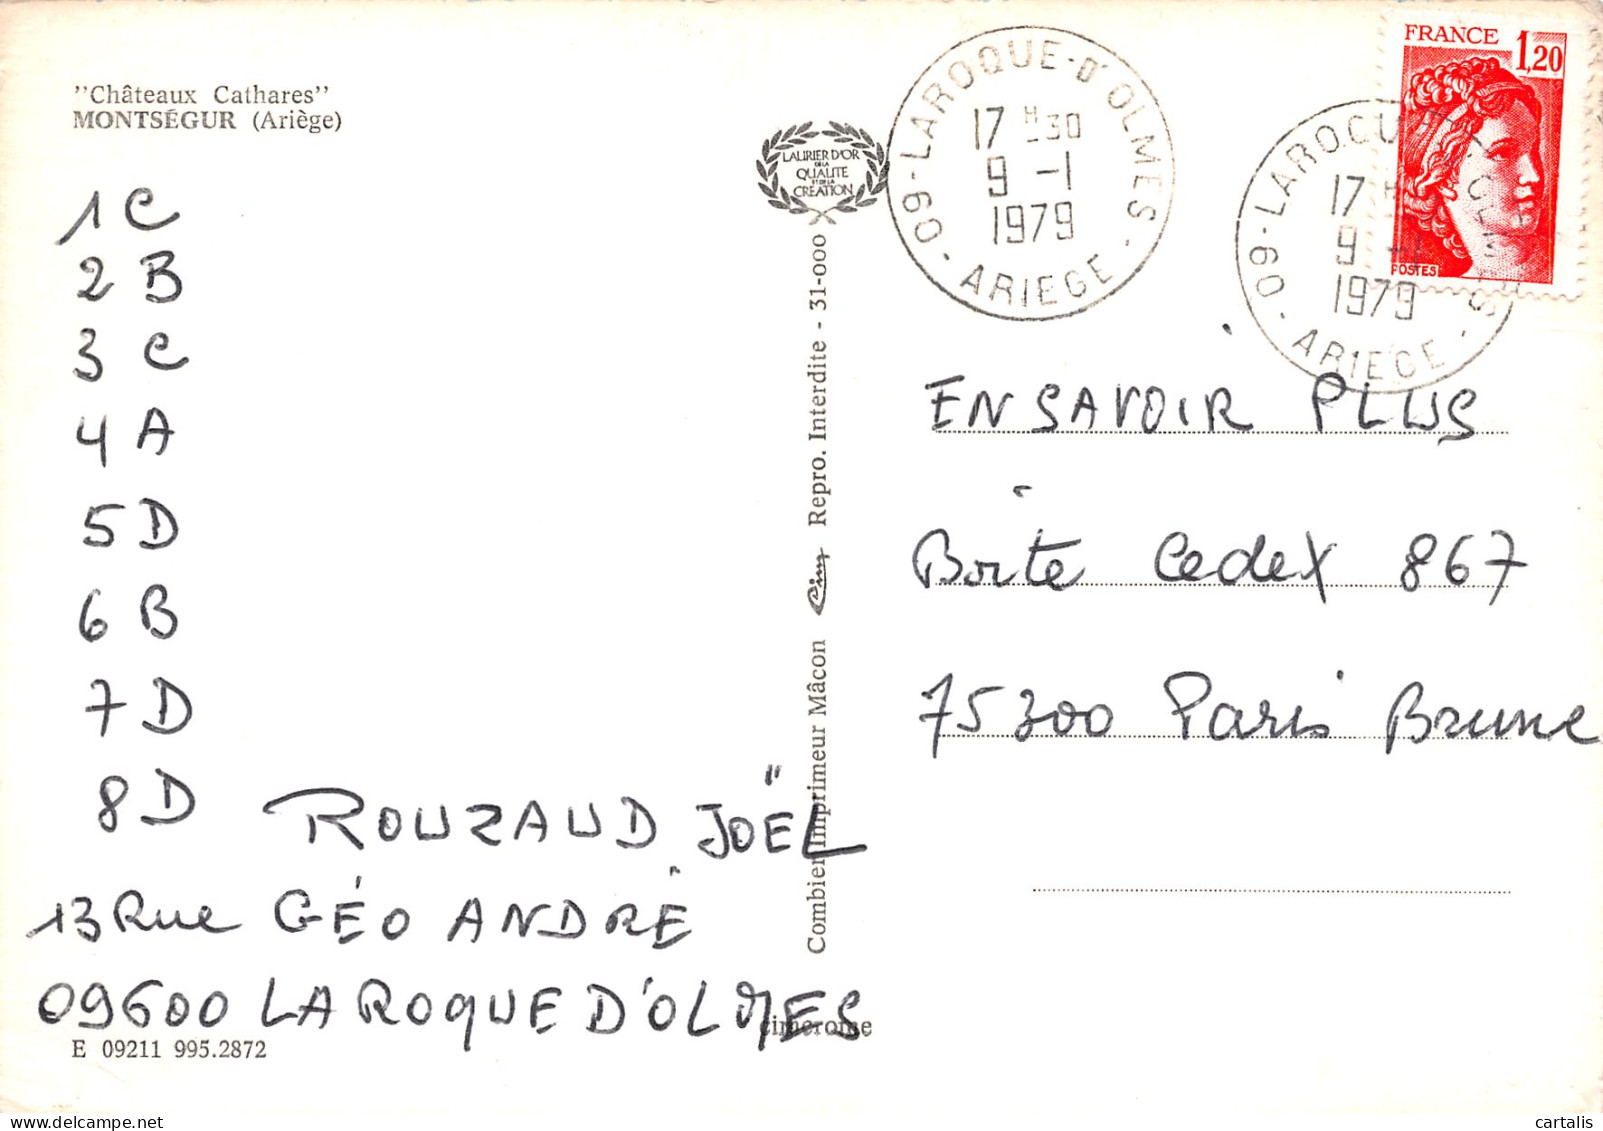 "Châteaux Cathares"
MONTSÉGUR (Ariège)
1 C
2 B
3 C
4 A
5 D
6 B
7 D
8 D
ROUZAUD JOËL
13 Rue GÉO ANDRÉ
09600 LAROQUE D'OLMES
E 09211 995.2872
cimcrome
LAURIER D'OR
DE LA
QUALITE
ET DE LA
CREATION
Combier imprimeur Mâcon Cim Repro. Interdite - 31-000
09-LAROQUE-D'OLMES - ARIEGE -
17 H 30
9 -1
1979
FRANCE 1,20
POSTES
09-LAROQUE-D'OLMES - ARIEGE -
17 H
9 -1
1979
EN SAVOIR PLUS
Boîte Cedex 867
75300 Paris Brune
cartalis